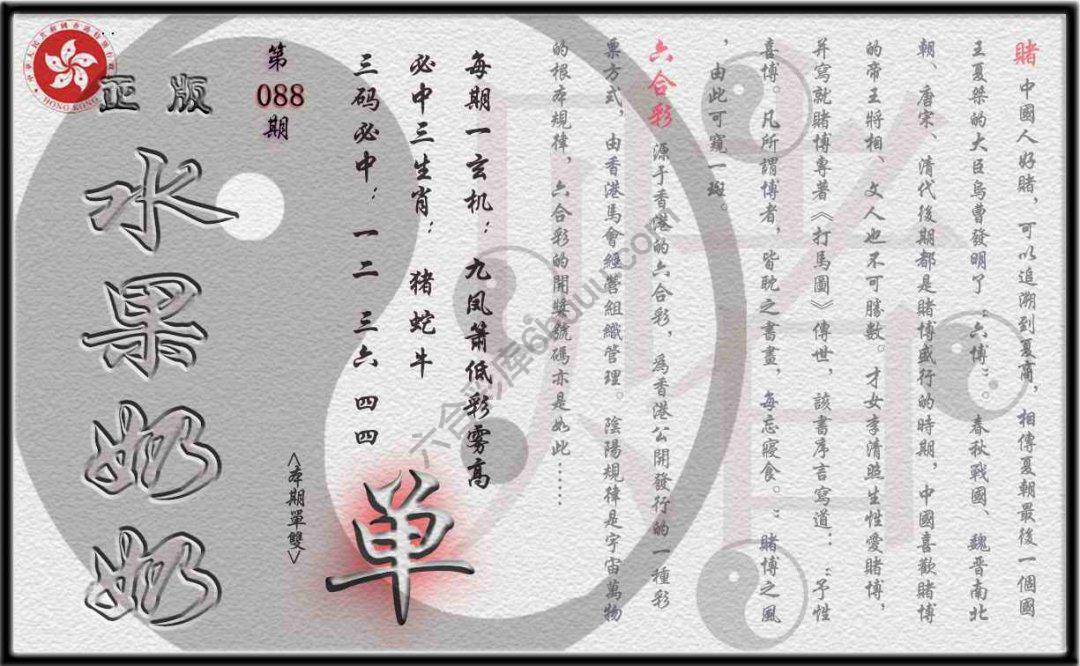 賭 中國人好賭，可以追溯到夏商，相傳夏朝最後一個國
王夏桀的大臣烏曹發明了“六博”。春秋戰國、魏晋南北
朝、唐宋、清代後期都是賭博盛行的時期，中國喜歡賭博
的帝王將相、文人也不可勝數。才女李清照生性愛賭博，
并寫就賭博專著《打馬圖》傳世，該書序言寫道：“予性
喜博。凡所謂博者，皆耽之書晝，每忘寢食。”賭博之風
，由此可窺一斑。
六合彩 源于香港的六合彩，為香港公開發行的一種彩
票方式，由香港馬會經營組織管理。陰陽規律是宇宙萬物
的根本規律，六合彩的開獎號碼亦是如此……
每期一玄机：九凤箫低彩雾高
必中三生肖：猪蛇牛
三码必中：一二 三六 四四
单
<本期單雙>
第
088
期
正版
水果奶奶
HONG KONG
六合彩库6kuuu.com